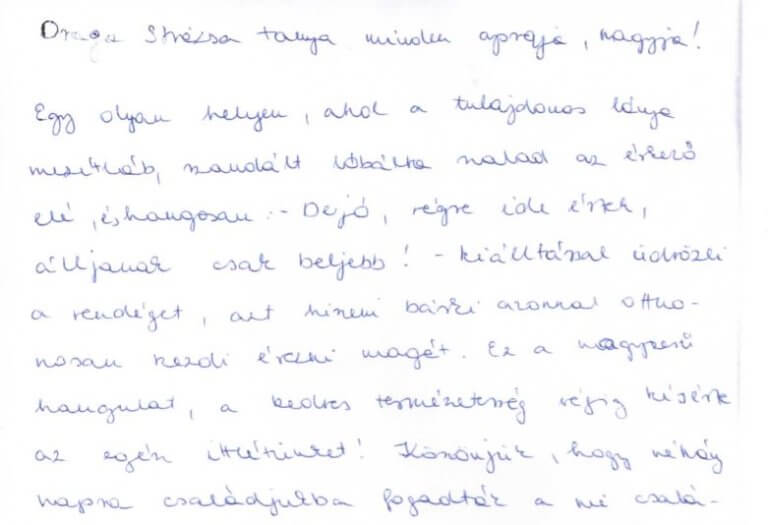 Drága Strázsa tanya minden apraja, nagyja!
Egy olyan helyen, ahol a tulajdonos lánya
mezítláb, szandált lóbálva szalad az érkező
elé, és hangosan: - De jó, végre ide értek,
álljanak csak beljebb! - kiáltással üdvözli
a vendéget, azt hiszem bárki azonnal ottho-
nosan kezdi érezni magát. Ez a nagyszerű
hangulat, a kedves természetesség végig kísérte
az egész ittlétünket! Köszönjük, hogy néhány
napra családjukba fogadták a mi csalá-